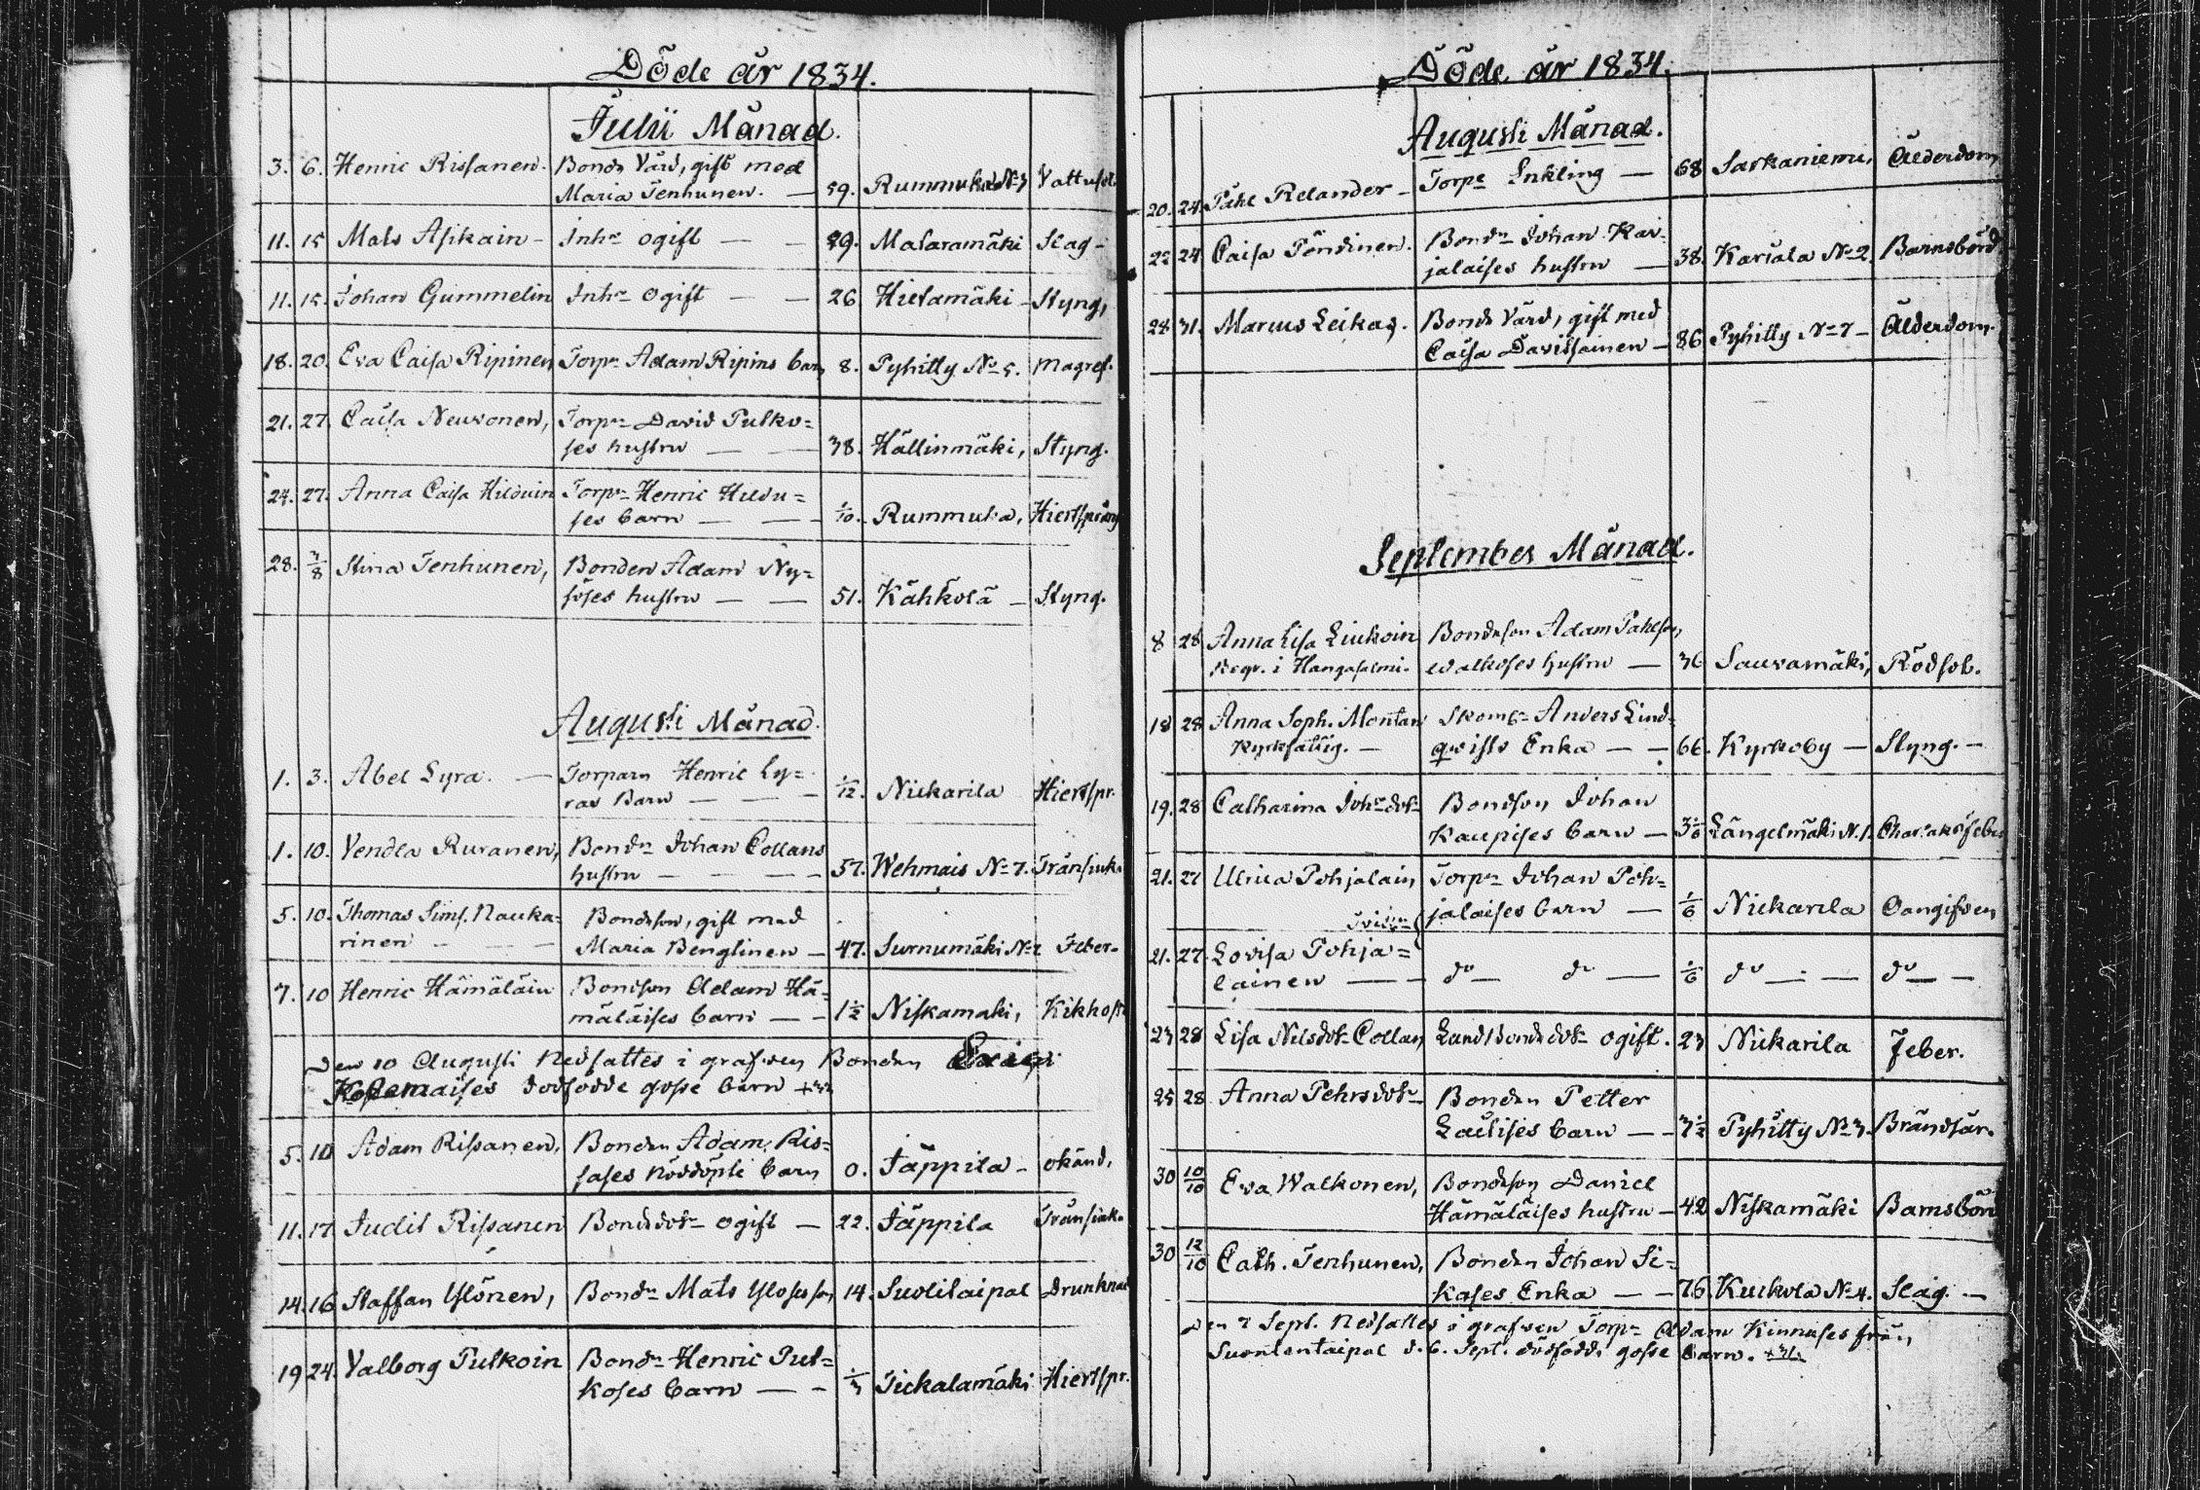 Döde år 1834.
Julii Månad.
3. 6. Henric Rissanen. Bonde Värd, gift med
Maria Tenhunen. — 59. Rummuka No 3 Vattusot
11. 15 Mats Asikain - Inhs ogift — — 29. Mataramäki Slag -
11. 15. Johan Gummelin Inhs ogift — — 26 Hietamäki - Styng,
18. 20. Eva Caisa Ripinen Torpn Adam Ripins barn 8. Pyhitty No 5. Magref.
21. 27. Caisa Neuvonen, Torpn David Pulko=
ses hustru — — 38. Hällinmäki, Styng.
24. 27. Anna Caisa Hilduin Torpn Henric Hildu=
ses barn — — 1/10. Rummuka, Hiertsprång
28. 3/8 Stina Tenhunen, Bonden Adam Ny=
söses hustru — — 51. Kähkölä - Styng.
Augusti Månad.
1. 3. Abel Lyra. — Torparn Henric Ly=
ras Barn — — 1/12. Nickarila Hiertspr.
1. 10. Vendla Ruranen, Bondn Johan Collans
hustru — — — 57. Wehmais No 7. Trånsiuk.
5. 10. Thomas Sims. Nauka=
rinen — — Bondeson, gift med
Maria Benglinen — 47. Surnumäki No 2 Feber.
7. 10 Henric Hämäläin Bondson Adam Hä=
mäläises barn — - 1 1/2 Niskamäki, Kikhosta
Den 10 Augusti Nedsattes i grafwen Bonden
Kosemaises dödfödde gosse barn
5. 10 Adam Rissanen, Bonden Adam Ris=
sases nöddöpte barn 0. Jäppilä - okänd.
11. 17. Judit Rissanen Bondedotr ogift — 22. Jäppilä Trånsiuk.
14. 16 Staffan Ylönen, Bondn Mats Ylöses son 14. Suolitaipal Drunknad
19 24. Valborg Pulkoin Bondn Henric Pul=
koses barn — - 1/3 Tickalamäki Hiertspr.
Döde år 1834.
Augusti Månad.
20. 24. Påhl Relander - Torpe Inkling — 68 Sarkaniemi, Ålderdom
22 24 Caisa Pöndinen. Bondn Johan Kar=
jalaises hustru — 38. Kariala No 2. Barnsbörd
28 31. Marcus Leikas. Bonde Värd, gift med
Caisa Davitsainen — 86 Pyhitty No 7 - Ålderdom.
September Månad.
8 28 Anna Lisa Liukoin Bondeson Adam Påhlson
Begr. i Hangasalmi. Walkoses hustru — 36 Sauvamäki, Rödsot.
18 28 Anna Soph. Montan Skomkr Anders Lind=
Kyrkfattig. — qwists Enka — — 66. Kyrkoby — Styng. -
19. 28 Catharina Johsdotr Bondson Johan
Kaupises barn — 3 1/6 Längelmäki N. 1. Charlaksfeber
21. 27 Ulrica Pohjalain Torpn Johan Poh=
jalaises barn — 1/6 Nickarila Oangifven
21. 27. Lovisa Pohja=
lainen — - do — do — 1/6 do — — do — —
23 28 Lisa Nilsdotr Collan Landbondedotr ogift. 23 Nickarila Feber.
25 28 Anna Pehrsdotr Bonden Petter
Lailises barn — - 3 1/2 Pyhitty No 3. Brändsår.
30 10/10 Eva Walkonen, Bondeson Daniel
Hämäläises hustru — 42 Niskamäki Barnsbörd
30 12/10 Cath. Tenhunen, Bonden Johan Si=
kases Enka — - 76. Kuckola No 4. Slag. —
Den 7 Sept. Nedsattes i grafven Torpn Adam Kinnuses från
Suontentaipal d. 6. Sept. dödfödde gosse barn.